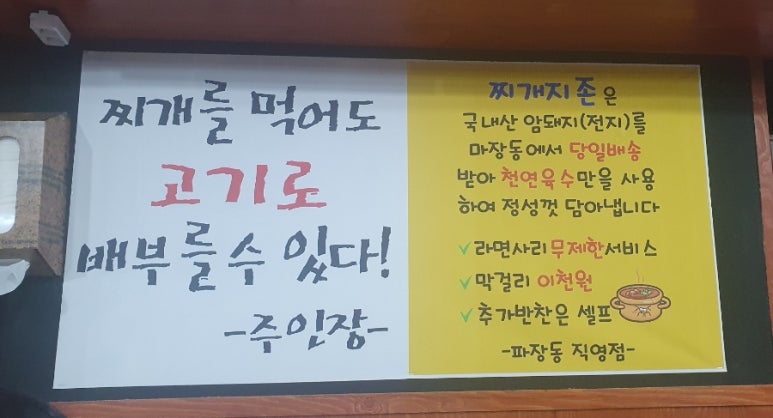 찌개를 먹어도
고기로
배부를수 있다!
-주인장-
찌개지존은
국내산 암돼지(전지)를
마장동에서 당일배송
받아 천연육수만을 사용
하여 정성껏 담아냅니다
✓라면사리무제한서비스
✓막걸리 이천원
✓추가반찬은 셀프
-파장동 직영점-